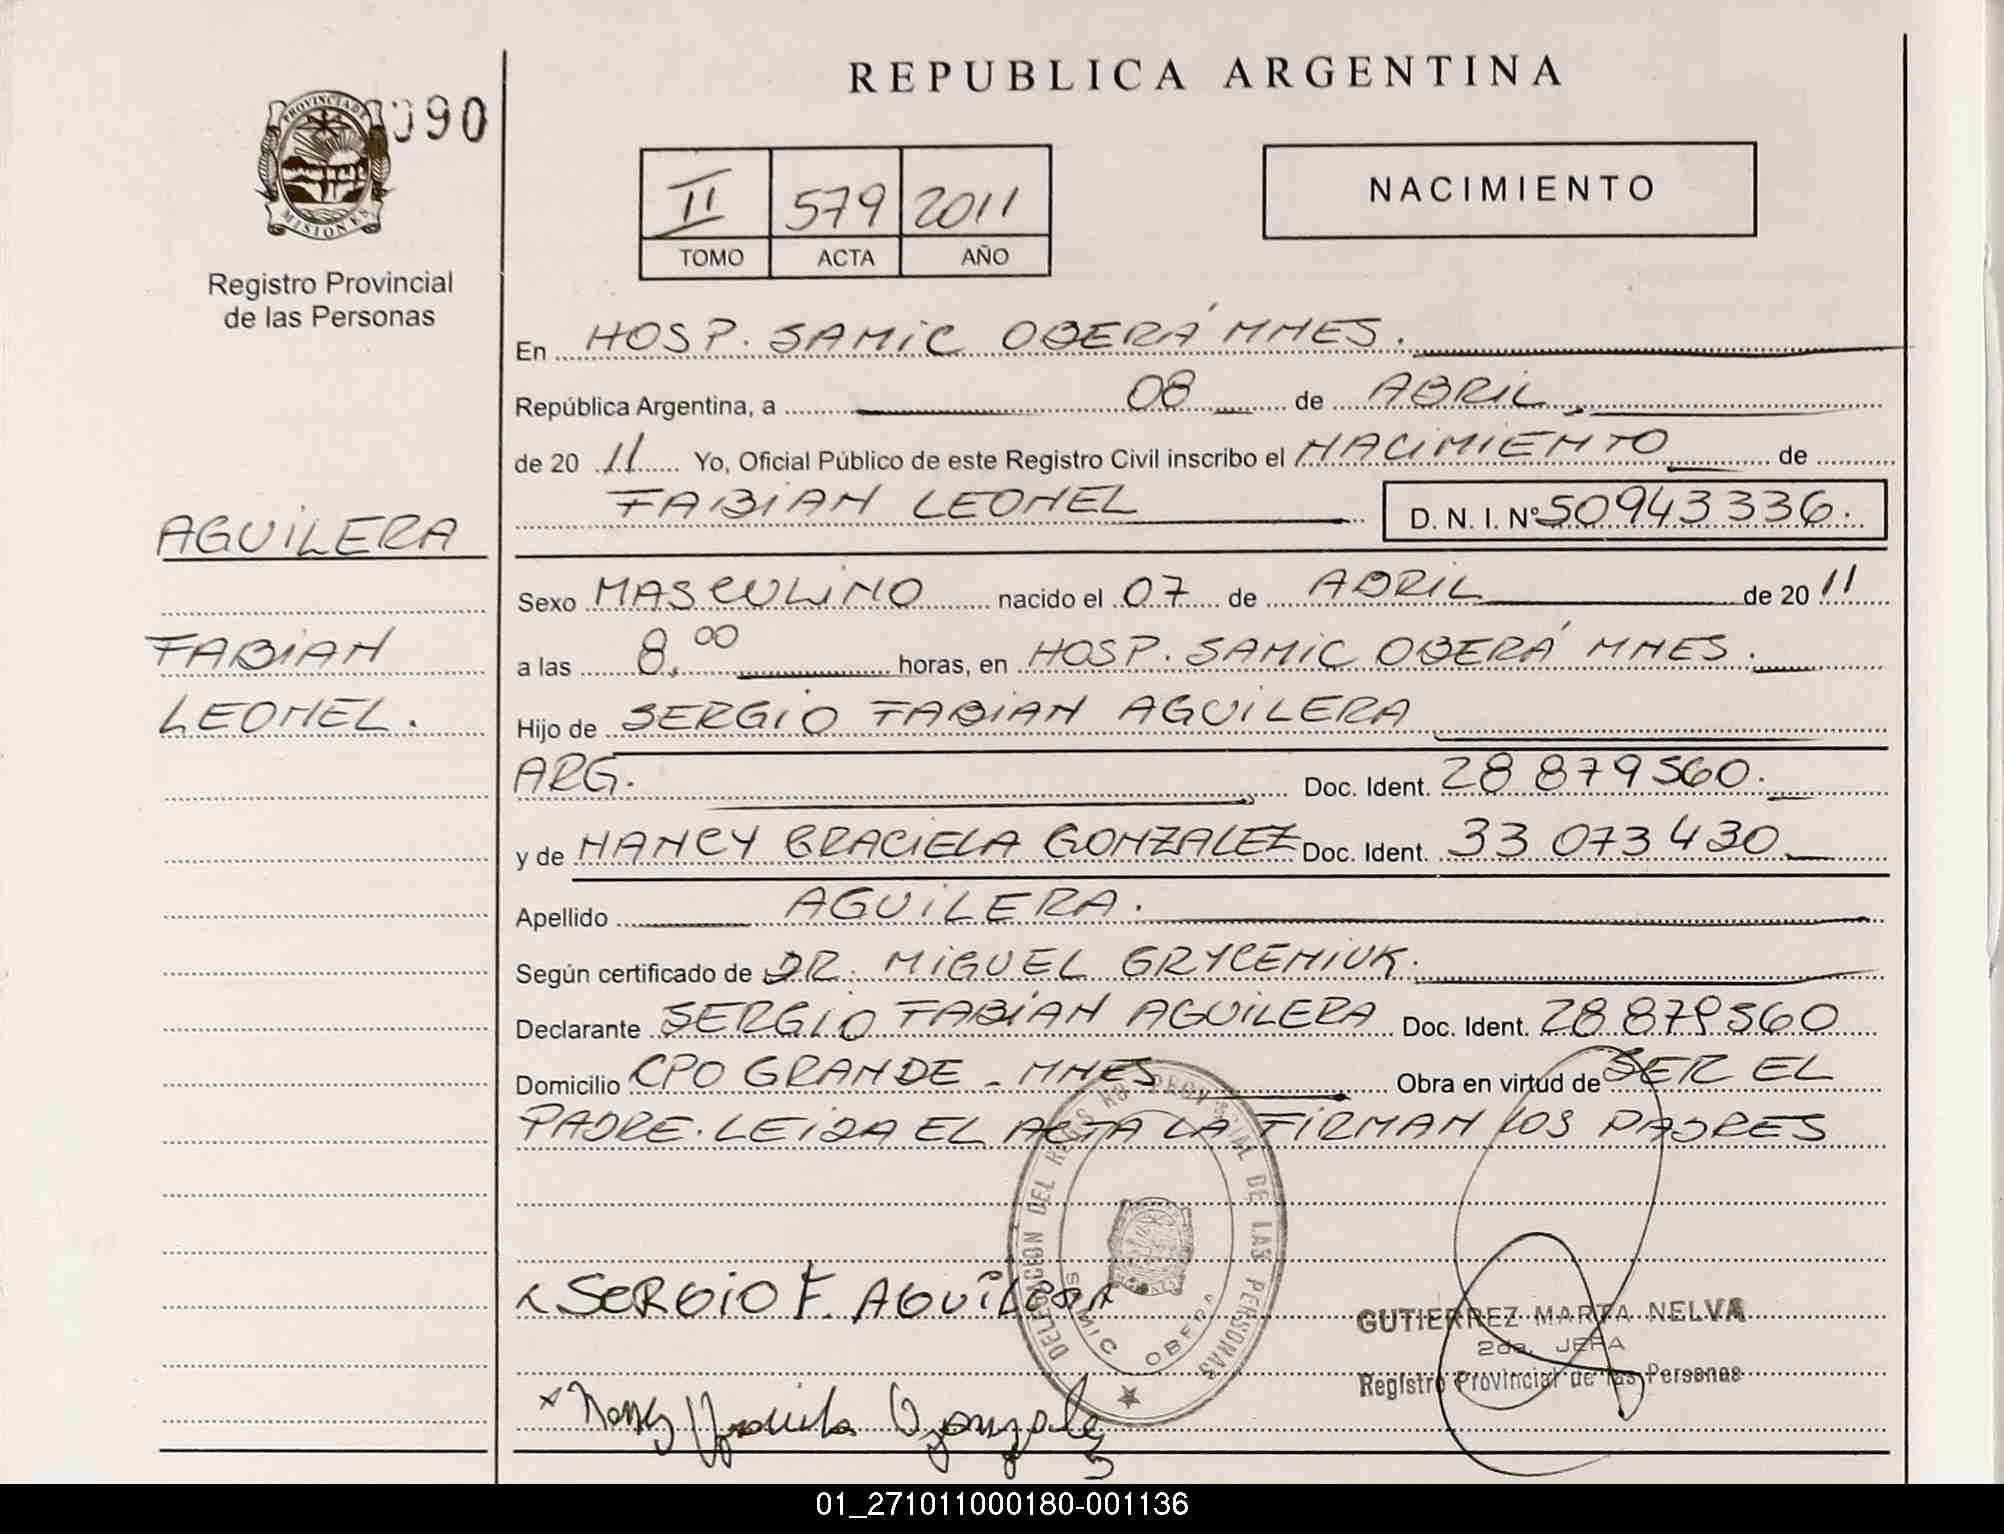 REPUBLICA ARGENTINA
PROVINCIA DE
MISIONES
090
Registro Provincial
de las Personas
II 579 2011
TOMO ACTA AÑO
NACIMIENTO
En HOSP. SAMIC OBERÁ MNES.
República Argentina, a 08 de ABRIL
de 20 11 Yo, Oficial Público de este Registro Civil inscribo el NACIMIENTO de
FABIAN LEONEL D. N. I. Nº 50943336.
AGUILERA
FABIAN
LEONEL.
Sexo MASCULINO nacido el 07 de ABRIL de 20 11
a las 8,00 horas, en HOSP. SAMIC OBERÁ MNES.
Hijo de SERGIO FABIAN AGUILERA
ARG. Doc. Ident. 28 879560.
y de NANCY GRACIELA GONZALEZ Doc. Ident. 33 073 430
Apellido AGUILERA.
Según certificado de DR. MIGUEL GRYCENIUK.
Declarante SERGIO FABIAN AGUILERA Doc. Ident. 28 879560
Domicilio CPO GRANDE - MNES Obra en virtud de SER EL
PADRE. LEIDA EL ACTA LA FIRMAN LOS PADRES
DELEGACION DEL REGISTRO PROVINCIAL DE LAS PERSONAS
SAMIC OBERA
SERGIO F. AGUILERA
Nancy Graciela Gonzalez
GUTIERREZ MARTA NELVA
2da. JEFA
Registro Provincial de las Personas
01_271011000180-001136